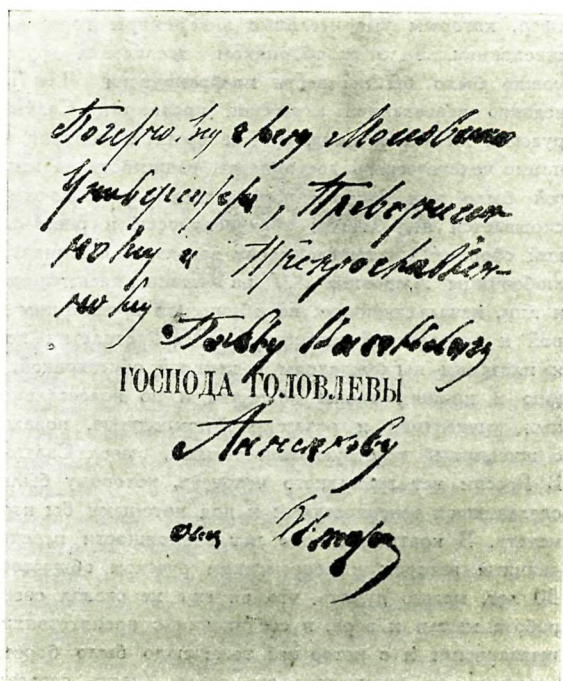 Почетному члену Московского
Университета, Превосходи-
мому и Препрославлен-
ному
Павлу Васильевичу
ГОСПОДА ГОЛОВЛЕВЫ
Анненкову
от Автора